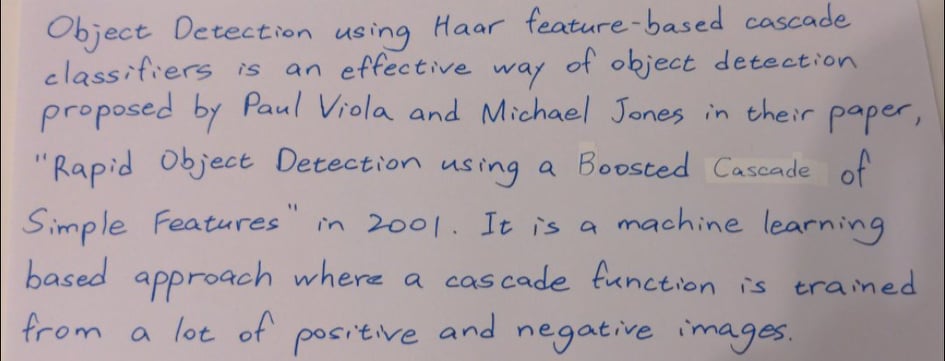 Object Detection using Haar feature-based cascade
classifiers is an effective way of object detection
proposed by Paul Viola and Michael Jones in their paper,
"Rapid Object Detection using a Boosted Cascade of
Simple Features" in 2001. It is a machine learning
based approach where a cascade function is trained
from a lot of positive and negative images.